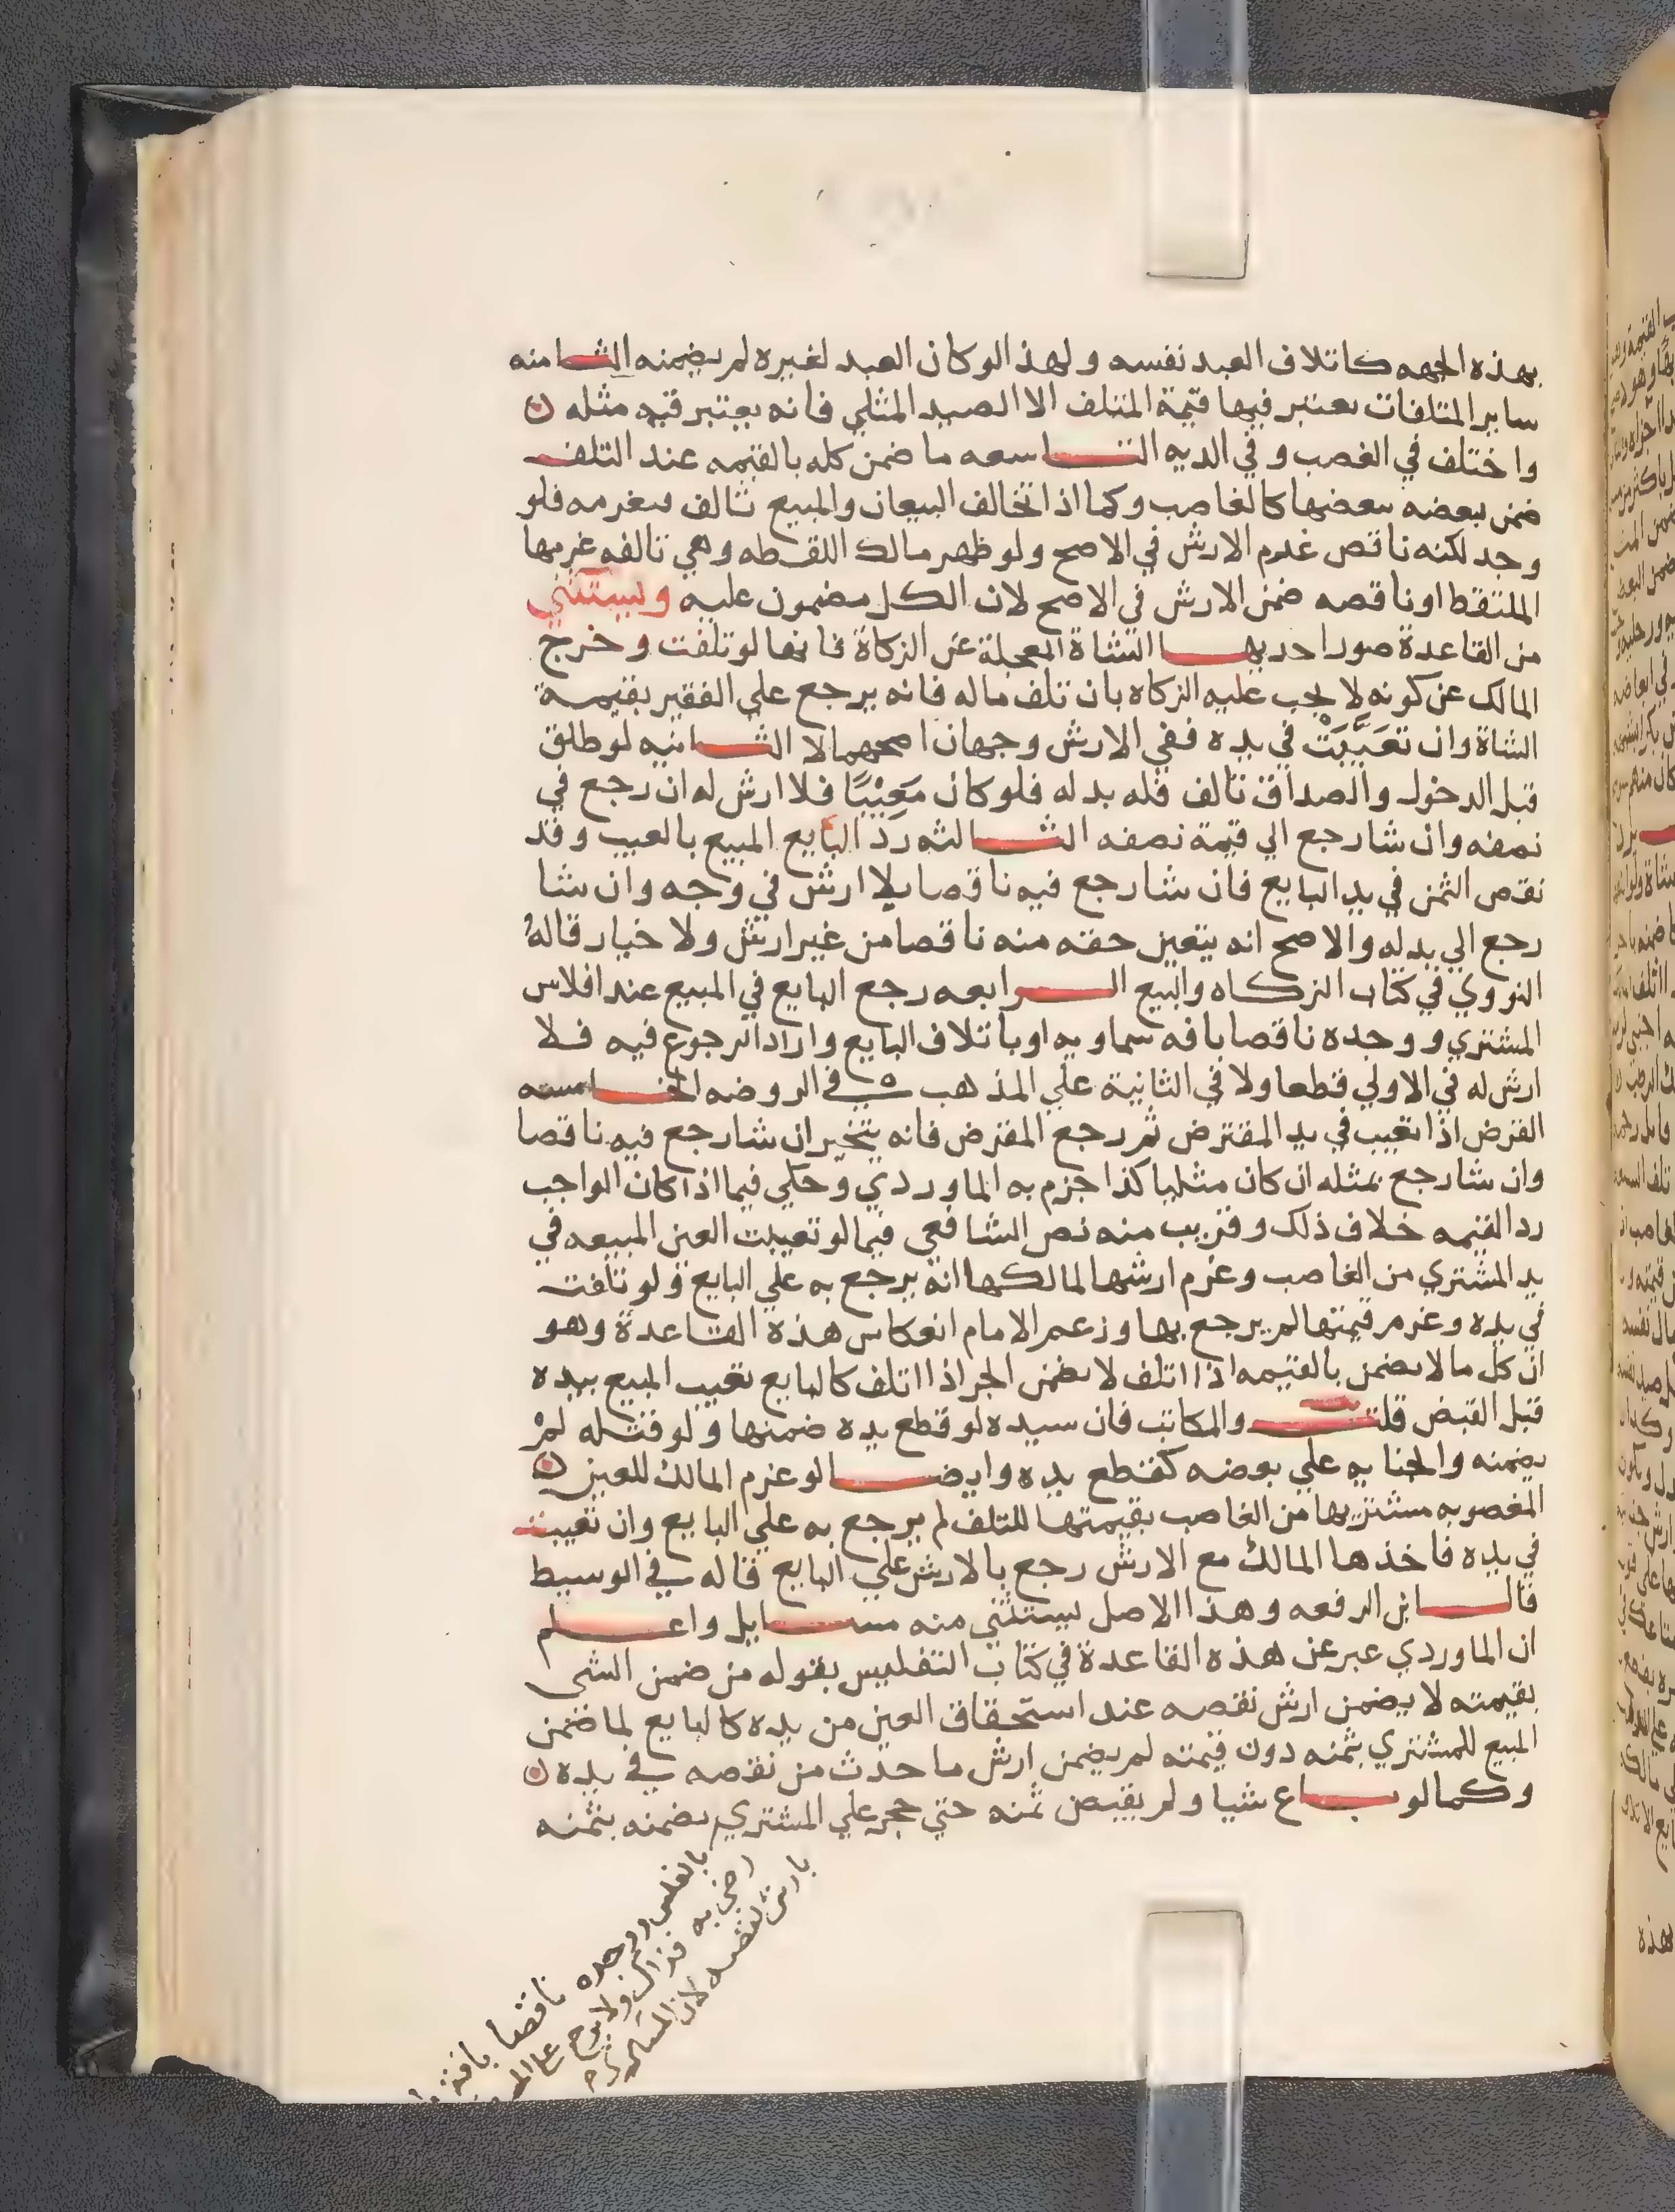 بهذه الجهه كاتلاف العبد نفسه ولهذا لو كان العبد لغيره لم يضمنه الثامنه
ساير المتلفات يعتبر فيها قيمة المتلف الا الصيد المثلي فانه يعتبر قيمه مثله
واختلف في الغصب وفي الديه التاسعه ما ضمن كله بالقيمه عند التلف
ضمن بعضه ببعضها كالغاصب وكما اذا تخالف البيعان والمبيع تالف فيغرمه فلو
وجد لكنه ناقص غرم الارش في الاصح ولو ظهر مالك اللقطه وهي تالفه غرمها
الملتقط او ناقصه ضمن الارش في الاصح لان الكل مضمون عليه ويستثني
من القاعدة صور احديها الشاة المعجلة عن الزكاة فانها لو تلفت وخرج
المالك عن كونه لا يجب عليه الزكاه بان تلف ماله فانه يرجع علي الفقير بقيمة
الشاة وان تعَيَّبَتْ في يده ففي الارش وجهان اصحهما لا الثانيه لو طلق
قبل الدخول والصداق تالف فله بدله فلو كان مَعِيْبًا فلا ارش له ان رجع في
نصفه وان شا رجع الي قيمة نصفه الثالثه رد البايع المبيع بالعيب وقد
نقص الثمن في يد البايع فان شا رجع فيه ناقصا بلا ارش في وجه وان شا
رجع الي بدله والاصح انه يتعين حقه منه ناقصا من غير ارش ولا خيار قاله
النووي في كتاب الزكاه والبيع الرابعه رجع البايع في المبيع عند افلاس
المشتري ووجده ناقصا بافه سماويه او باتلاف البايع واراد الرجوع فيه فلا
ارش له في الاولي قطعا ولا في الثانية علي المذهب في الروضه الخامسه
القرض اذا تعيب في يد المقترض ثم رجع المقرض فانه يتخير ان شا رجع فيه ناقصا
وان شا رجع بمثله ان كان مثليا كذا جزم به الماوردي وحكي فيما اذا كان الواجب
رد القيمه خلاف ذلك وقريب منه نص الشافعي فيما لو تعيبت العين المبيعه في
يد المشتري من الغاصب وغرم ارشها لمالكها انه يرجع به علي البايع ولو تلفت
في يده وغرم قيمتها لم يرجع بها وزعم الامام انعكاس هذه القاعدة وهو
ان كل ما لا يضمن بالقيمه اذا اتلف لا يضمن الجز اذا اتلف كالبايع تعيب المبيع بيده
قبل القبض قلت والمكاتب فان سيده لو قطع يده ضمنها ولو قتله لمْ
يضمنه والجنايه علي بعضه كقطع يده وايضا لو غرم المالك للعين
المغصوبه مشتريها من الغاصب بقيمتها للتلف لم يرجع به علي البايع وان تعيبت
في يده فاخذها المالك مع الارش رجع بالارش علي البايع قاله في الوسيط
قال ابن الرفعه وهذا الاصل يستثني منه مسايل واعلم
ان الماوردي عبر عن هذه القاعدة في كتاب التفليس بقوله من ضمن الشي
بقيمته لا يضمن ارش نقصه عند استحقاق العين من يده كالبايع لما ضمن
المبيع للمشتري بثمنه دون قيمته لم يضمن ارش ما حدث من نقصه في يده
وكما لو باع شيا ولم يقبض ثمنه حتي حجر علي المشتري يضمنه بثمنه
بالفلس ووجده ناقصا بافة
رضي به فذاك ولا يرجع علي
بارش نقصه لان